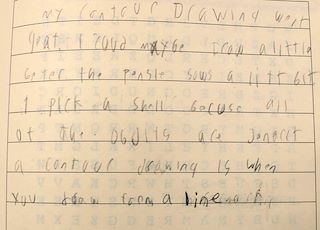 My Contour Drawing went
goat I could maybe Draw a little
beter the pensle saws a litt bit
I pick a shell becuse all
of the obdits are
a contour drawing is when
you draw form a line